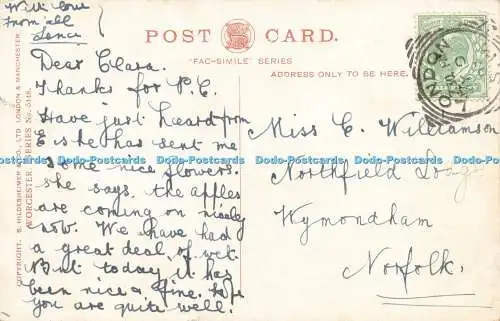 With love
from all
POST CARD.
"FAC-SIMILE" SERIES
ADDRESS ONLY TO BE HERE.
Dear Clara.
Thanks for P.C.
Have just heard from
E is he has sent me
Some nice flowers.
she says, the apples
are coming on nicely
now. We have had
a great deal, of wet.
But today it has
been nice & fine. hope
you are quite well.
Miss C. Williamson
Northfield
Wymondham
Norfolk.
LONDON
COPYRIGHT. S. HILDESHEIMER & CO., LTD LONDON & MANCHESTER
WORCESTER. SERIES No. 5148.
Dodo-Postcards Dodo-Postcards Dodo-Postcards Dodo-Postcards Dodo-Postcards